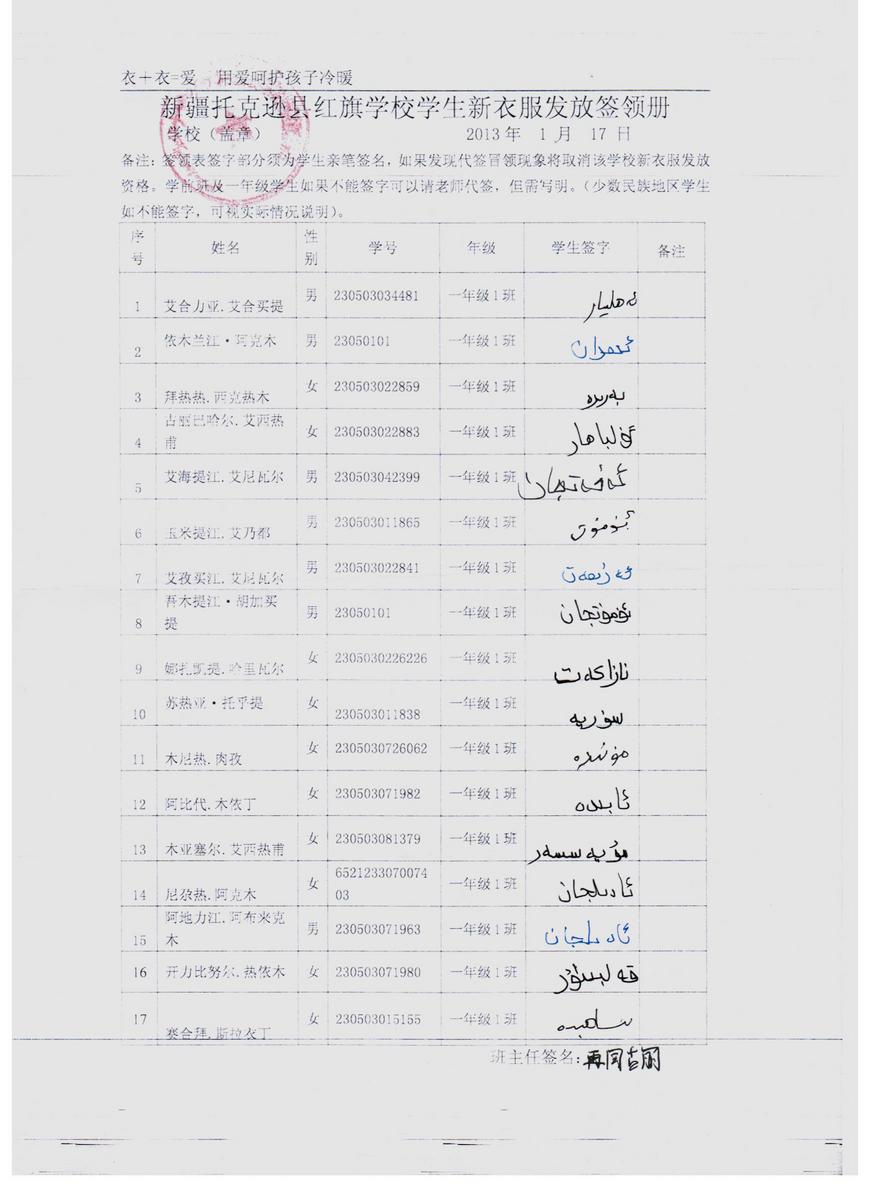 衣+衣=爱 用爱呵护孩子冷暖
新疆托克逊县红旗学校学生新衣服发放签领册
学校（盖章） 2013年 1月 17日
备注：签领表签字部分须为学生亲笔签名，如果发现代签冒领现象将取消该学校新衣服发放
资格。学前班及一年级学生如果不能签字可以请老师代签，但需写明。（少数民族地区学生
如不能签字，可视实际情况说明）。
序号 姓名 性别 学号 年级 学生签字 备注
1 艾合力亚.艾合买提 男 230503034481 一年级1班 ئەھليار
2 依木兰江·阿克木 男 23050101 一年级1班
3 拜热热.西克热木 女 230503022859 一年级1班
4 古丽巴哈尔.艾西热甫 女 230503022883 一年级1班
5 艾海提江.艾尼瓦尔 男 230503042399 一年级1班
6 玉米提江.艾乃都 男 230503011865 一年级1班
7 艾孜买江.艾尼瓦尔 男 230503022841 一年级1班
8 吾木提江·胡加买提 男 23050101 一年级1班 ئۈمۈتجان
9 娜扎凯提.哈里瓦尔 女 2305030226226 一年级1班 نازاكەت
10 苏热亚·托乎提 女 230503011838 一年级1班 سۈريە
11 木尼热.肉孜 女 2305030726062 一年级1班
12 阿比代.木依丁 女 230503071982 一年级1班 ئابىدە
13 木亚塞尔.艾西热甫 女 230503081379 一年级1班 مۇيەسسەر
14 尼尕热.阿克木 女 652123307007403 一年级1班 ئادىلجان
15 阿地力江.阿布来克木 男 230503071963 一年级1班 ئادىلجان
16 开力比努尔.热依木 女 230503071980 一年级1班
17 赛合拜.斯拉衣丁 女 230503015155 一年级1班
班主任签名：